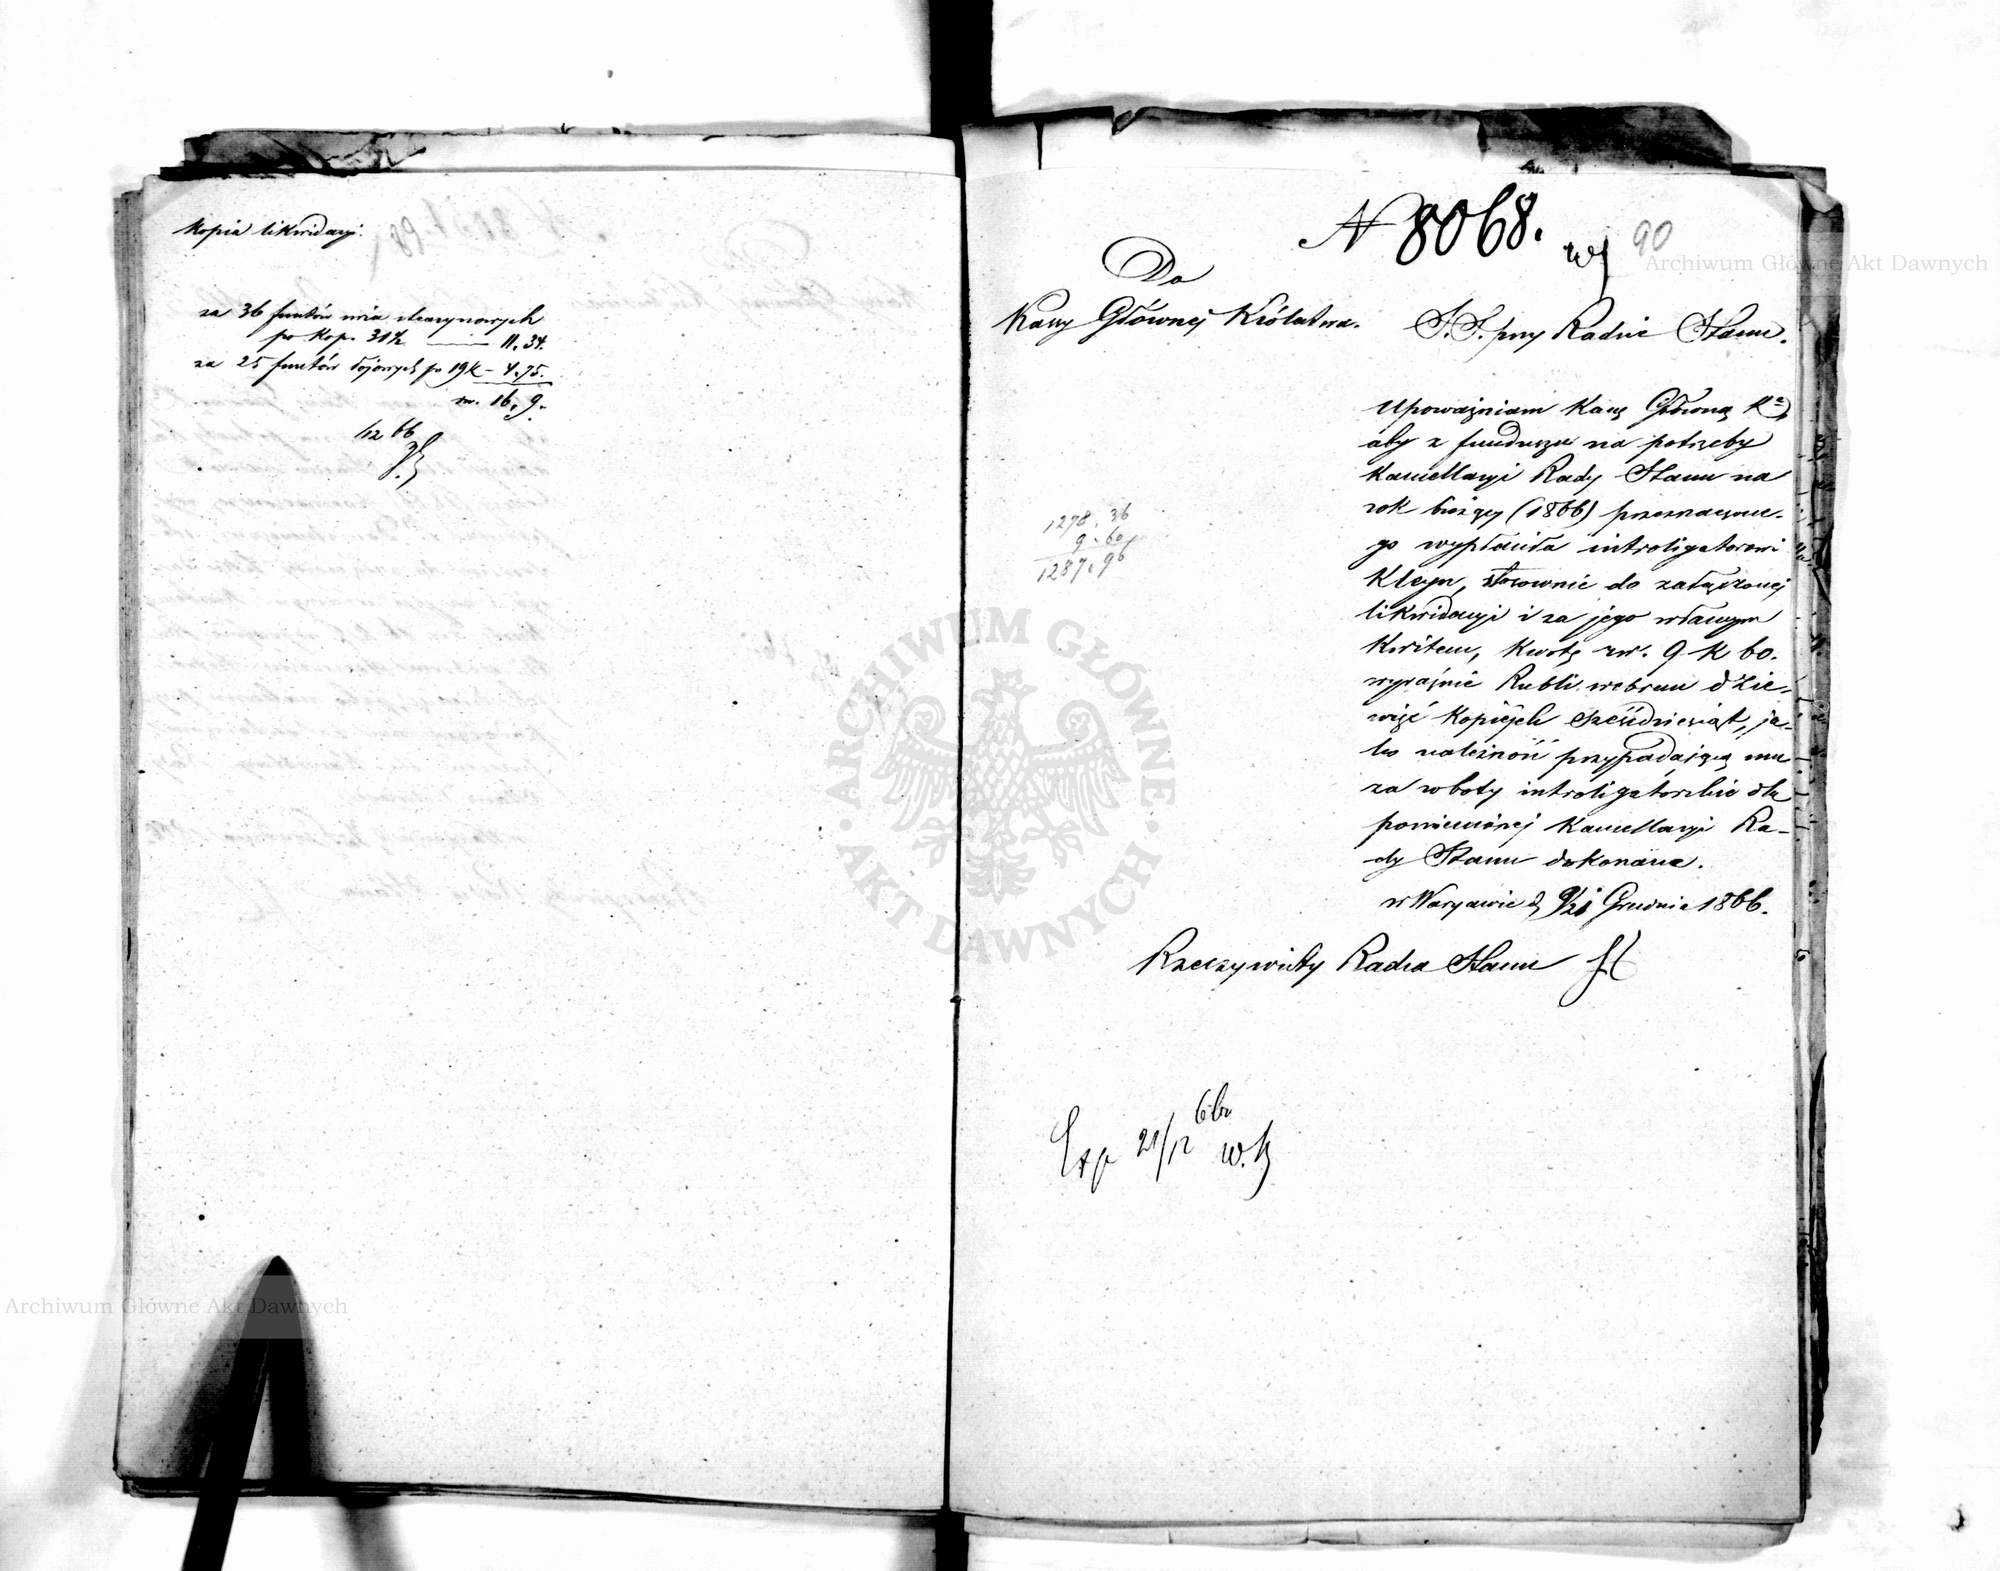 Kopia likwidacyi.
za 36 funtów świec stearynowych
po kop. 31½ — 11. 34.
za 25 funtów łojowych po 19 k — 4. 75.
rs. 16, 9.
/12 66
N 8068.
90
Do
Kassy Głównej Królestwa.
S.S. przy Radzie Stanu.
Upoważniam Kassę Główną K
aby z funduszu na potrzeby
Kancellaryi Rady Stanu na
rok bieżący (1866) przeznaczone-
go wypłaciła introligatorowi
Kleyn, stosownie do załączonej
likwidacyi i za jego własnym
kwitem, kwotę rsr. 9 k 60.
wyraźnie Rubli srebrem dzie-
więć kopiejek sześćdziesiąt, ja-
ko należność przypadającą mu
za roboty introligatorskie dla
pomienionej Kancellaryi Ra-
dy Stanu dokonane.
w Warszawie d. 9/21 Grudnia 1866.
Rzeczywisty Radca Stanu
1278. 36
9. 60
1287. 96
Exp 21/12 66
Archiwum Główne Akt Dawnych
Archiwum Główne Akt Dawnych
ARCHIWUM GŁÓWNE · AKT DAWNYCH ·